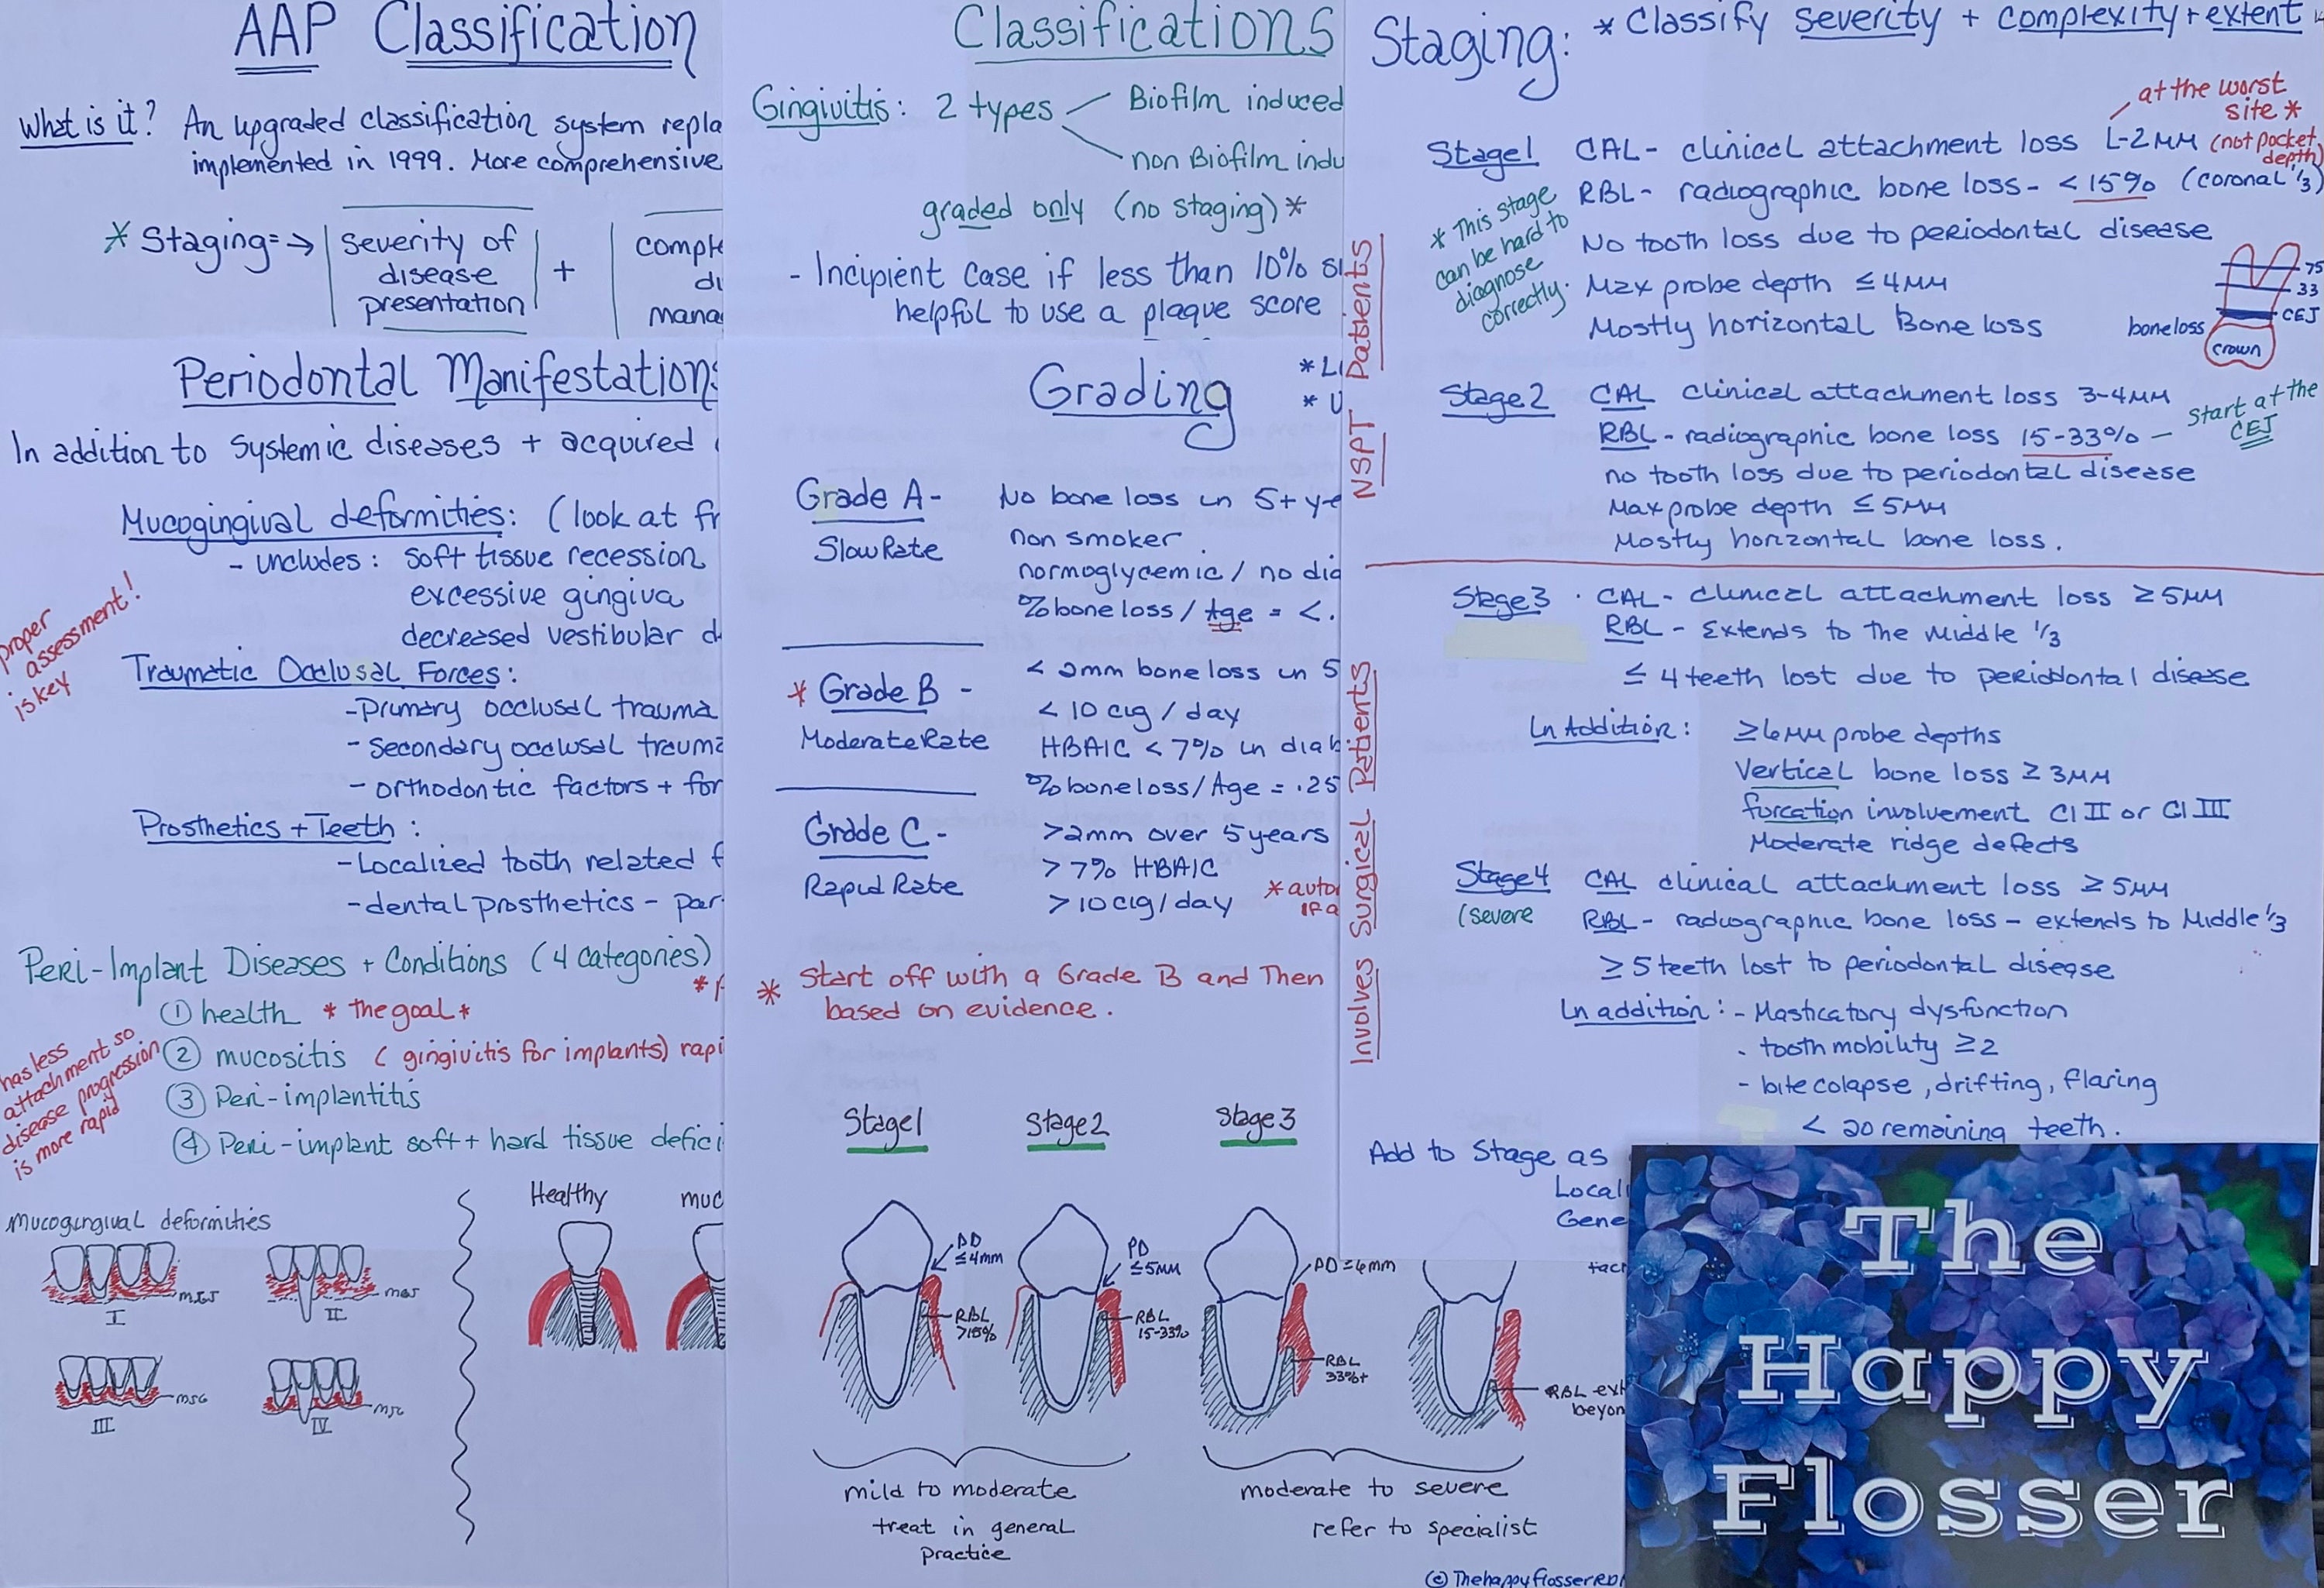 AAP Classification
What is it? An upgraded classification system repla
implemented in 1999. More comprehensive
* Staging=> severity of disease presentation + comple
di
mana
Periodontal Manifestations
In addition to systemic diseases + acquired
Mucogingival deformities: (look at fr
- includes: soft tissue recession
excessive gingiva
decreased vestibular d
proper
assessment!
is key
Traumatic Occlusal Forces:
- Primary occlusal trauma
- Secondary occlusal trauma
- orthodontic factors + for
Prosthetics + Teeth:
- Localized tooth related f
- dental prosthetics - par
Peri-Implant Diseases + Conditions (4 categories)
① health * the goal *
② mucositis (gingivitis for implants) rapi
③ Peri-implantitis
④ Peri-implant soft + hard tissue defici
has less
attachment so
disease progression
is more rapid
Mucogingival deformities
MGJ
I
MGJ
II
MGJ
III
MGJ
IV
Healthy
muc
Classifications
Gingivitis: 2 types
Biofilm induced
non Biofilm indu
graded only (no staging) *
- Incipient case if less than 10% si
helpful to use a plaque score
Grading
* Li
* U
Grade A-
Slow Rate
No bone loss in 5+ ye
non smoker
normoglycemic / no dia
% bone loss / Age = <.
* Grade B -
Moderate Rate
< 2mm bone loss in 5
< 10 cig / day
HBA1C < 7% in diab
% bone loss / Age = .25
Grade C -
Rapid Rate
>2mm over 5 years
> 7% HBA1C
> 10 cig / day
* autor
IF a
* Start off with a Grade B and Then
based on evidence.
Stage 1
Stage 2
Stage 3
PD
≤4mm
RBL
>15%
PD
≤5MM
RBL
15-33%
PD=6mm
RBL
33%+
RBL ext
beyon
mild to moderate
treat in general
practice
moderate to severe
refer to specialist
© ThehappyflosserRDH
Staging: * Classify severity + complexity + extent
at the worst
site *
Stage 1 CAL - clinical attachment loss 1-2MM (not pocket
depth)
RBL - radiographic bone loss - < 15% (coronal 1/3)
No tooth loss due to periodontal disease
Max probe depth ≤ 4MM
Mostly horizontal Bone loss
* This stage
can be hard to
diagnose
correctly.
75
33
CEJ
bone loss
crown
NSPT Patients
Stage 2 CAL clinical attachment loss 3-4MM
RBL - radiographic bone loss 15-33% -
start at the
CEJ
no tooth loss due to periodontal disease
Max probe depth ≤ 5MM
Mostly horizontal bone loss.
Involves Surgical Patients
Stage 3 . CAL - clinical attachment loss ≥5MM
RBL - Extends to the Middle 1/3
≤ 4 teeth lost due to periodontal disease
In Addition: ≥6MM probe depths
Vertical bone loss ≥ 3MM
forcation involvement Cl II or Cl III
Moderate ridge defects
Stage 4 CAL clinical attachment loss ≥ 5MM
(severe RBL - radiographic bone loss - extends to Middle 1/3
≥ 5 teeth lost to periodontal disease
In addition: - Masticatory dysfunction
- tooth mobility ≥2
- bite colapse, drifting, flaring
< 20 remaining teeth.
Add to Stage as
Locali
Gene
The
Happy
Flosser